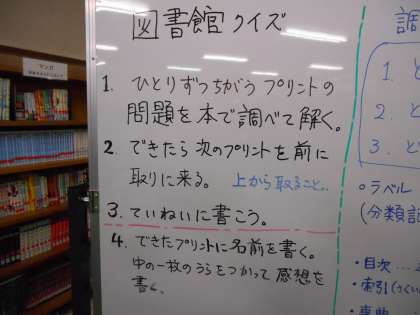 マンガ
図書館クイズ
1. ひとりずつちがうプリントの
問題を本で調べて解く。
2 できたら次のプリントを前に
取りに来る。 上から取ること。
3. ていねいに書こう。
4. できたプリントに名前を書く。
中の一枚のうらをつかって感想を
書く。
調
1. ど
2. と
3. ど
○ラベル
(分類記
・目次…
・索引(さくい
・事典